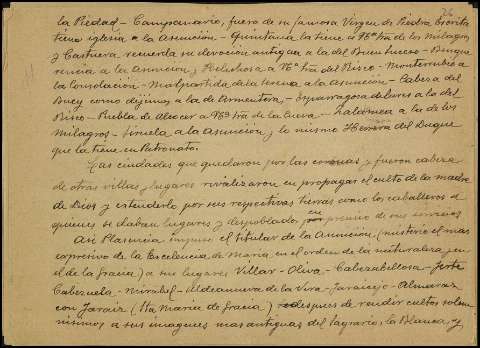 la Piedad - Campanario, fuera de su famosa Virgen de Piedra Escrita
tiene iglesia a la Asunción - Quintana la tiene a Nª Srª de los Milagros
y Castuera recuerda su devoción antigua a la del Buen Suceso - Benque
rencia a la Asunción, Helechosa a Nª Srª del Risco - Monterrubio a
la Consolación - Malpartida de la Serena a la Asunción - Cabeza del
Buey como dijimos a la de Armentera - Esparragosa de Lares a la del
Risco - Puebla de Alcocer a Nª Srª de la Cueva - Zalamea a la de los
Milagros - Siruela a la Asunción y lo mismo Herrera del Duque
que la tiene en Patronato.
Las ciudades que quedaron por las coronas y fueron cabeza
de otras villas y lugares rivalizaron en propagar el culto de la madre
de Dios y estenderlo por sus respectivas tierras como los caballeros a
quienes se daban lugares y despoblados en premio de sus servicios
Así Plasencia impuso el titular de la Asunción (misterio el mas
expresivo de la Excelencia de María en el orden de la naturaleza y en
el de la gracia) a sus lugares Villar - Oliva - Cabezabellosa - Jerte
Cabezuela - Mirabel - Aldeanueva de la Vera - Jaraicejo - Almaraz
con Jaraiz (Sta María de Gracia) despues de rendir cultos solem
nisimos a sus imagenes mas antiguas del Sagrario, la Blanca y